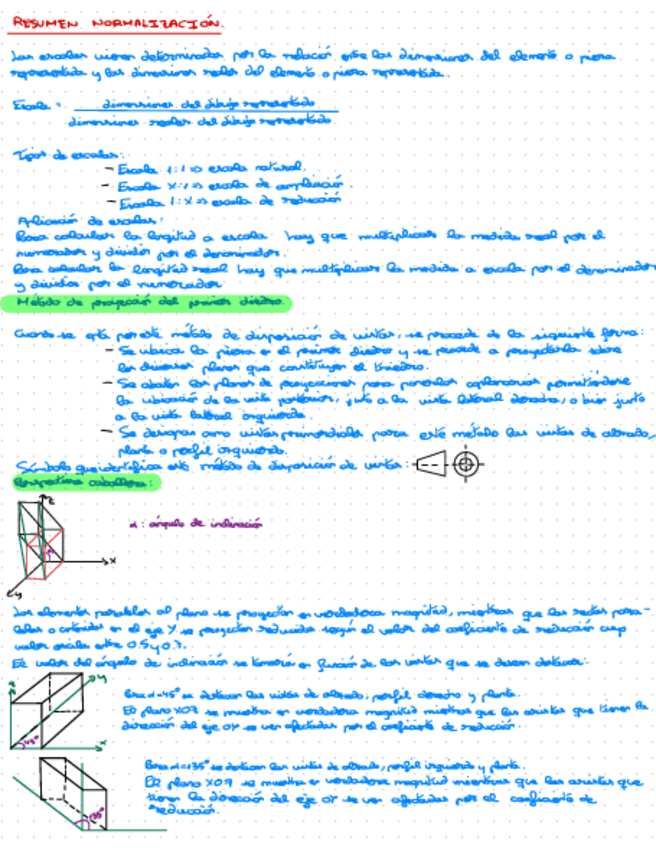 RESUMEN NORMALIZACIÓN.
Las escalas vienen determinadas por la relación entre las dimensiones del elemento o pieza
representada y las dimensiones reales del elemento o pieza representada.
Escala = dimensiones del dibujo representado
dimensiones reales del dibujo representado
Tipos de escalas:
- Escala 1:1 => escala natural.
- Escala X:1 => escala de ampliación.
- Escala 1:X => escala de reducción
Aplicación de escalas:
Para calcular la longitud a escala hay que multiplicar la medida real por el
numerador y dividir por el denominador.
Para calcular la longitud real hay que multiplicar la medida a escala por el denominador
y dividir por el numerador
Método de proyección del primer diedro.
Cuando se opta por este método de disposición de vistas, se procede de la siguiente forma:
- Se ubica la pieza en el primer diedro y se procede a proyectarla sobre
los diversos planos que constituyen el triedro.
- Se abaten los planos de proyecciones para ponerlos coplanarios permitiéndose
la ubicación de la vista posterior, junto a la vista lateral derecha, o bien junto
a la vista lateral izquierda.
- Se designan como vistas primordiales para este método las vistas de alzado,
planta o perfil izquierdo.
Símbolo que identifica este método de disposición de vistas:
Perspectiva caballera:
z
α: ángulo de inclinación
x
y
Los elementos paralelos al plano se proyectan en verdadera magnitud, mientras que las rectas para-
lelas o contenidas en el eje Y se proyectan reducidas según el valor del coeficiente de reducción cuyo
valor oscila entre 0.5 y 0.7.
El valor del ángulo de inclinación se tomará en función de las vistas que se deseen destacar:
z
y
Para α=45° se destacan las vistas de alzado, perfil derecho y planta.
El plano XOZ se muestra en verdadera magnitud mientras que las aristas que tienen la
dirección del eje OY se ven afectadas por el coeficiente de reducción
45°
x
Para α=135° se destacan las vistas de alzado, perfil izquierdo y planta.
El plano XOZ se muestra en verdadera magnitud mientras que las aristas que
tienen la dirección del eje OY se ven afectadas por el coeficiente de
reducción.
135°